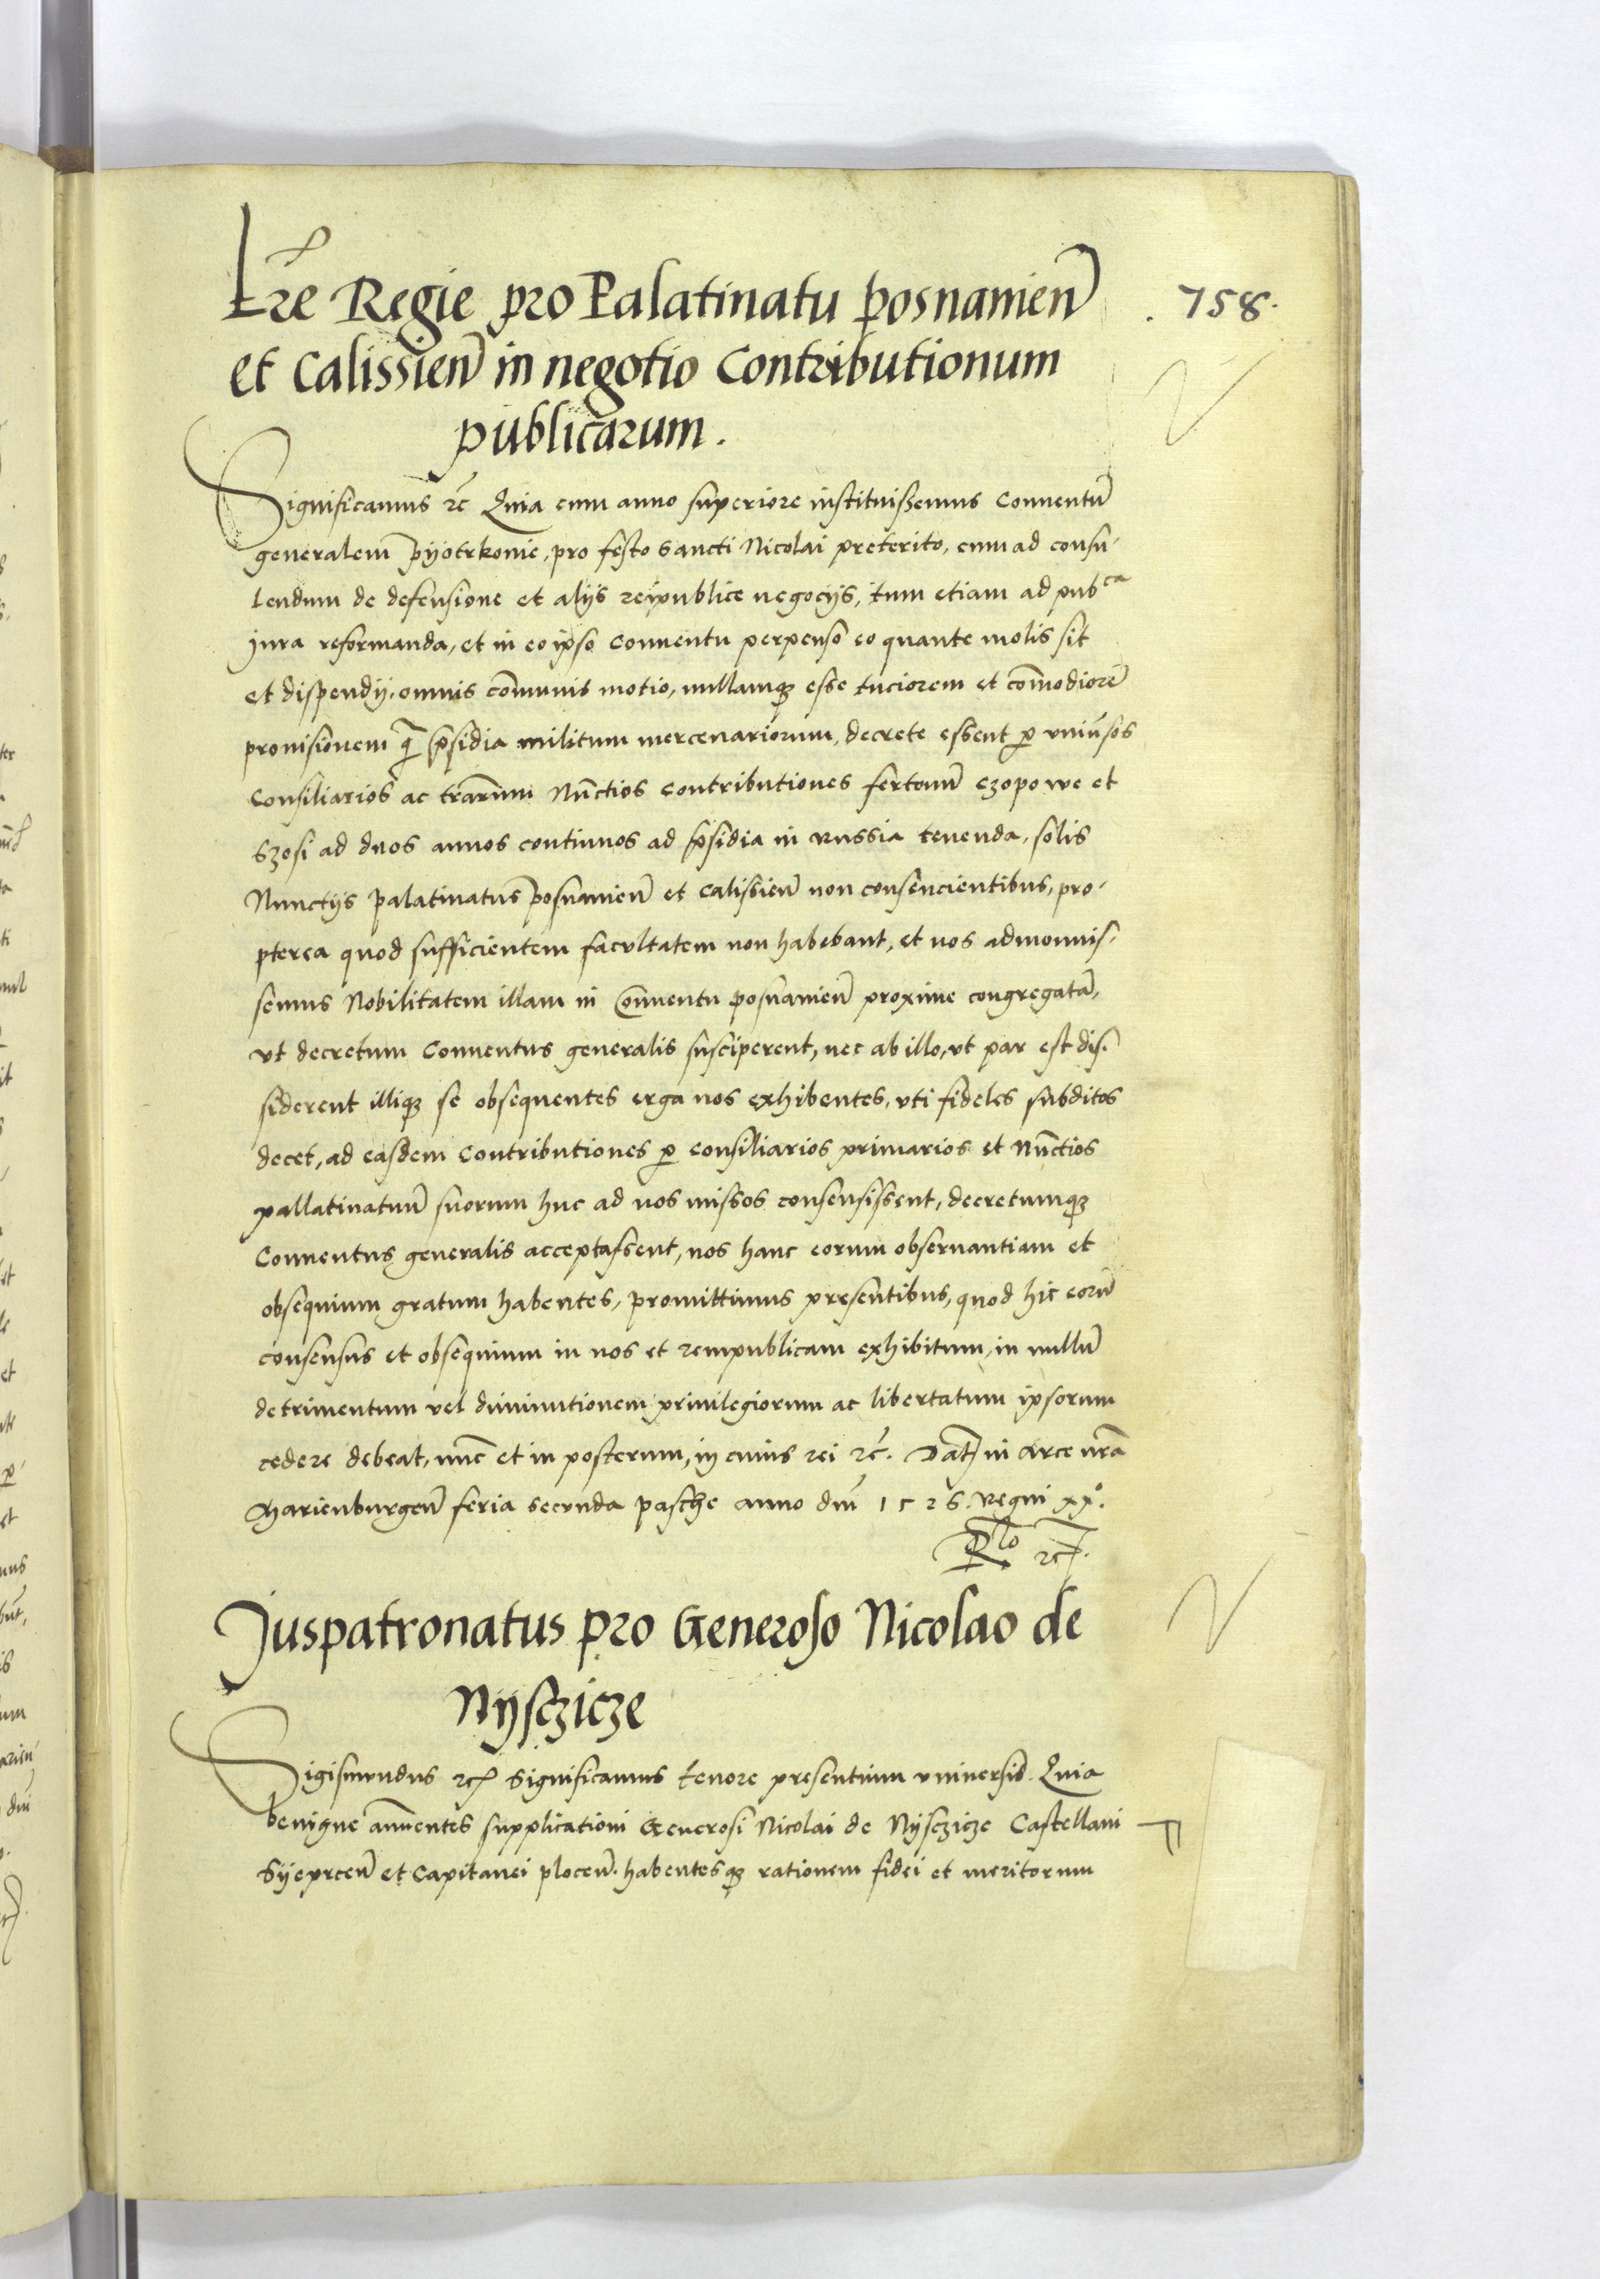 Lr̃e Regie pro Palatinatu posnanien̄
. 758.
et Calissien̄ in negotio Contributionum
publicarum.
Significamus rc̄ Quia cum anno superiore instituissemus Conuentū
generalem pyotrkouie, pro festo Sancti Nicolai preterito, cum ad consu-
lendum de defensione et alijs reipublice negocijs, tum etiam ad pubca
jura reformanda, et in eo ipso Conuentu perpenso eo quante molis sit
et dispendij. omnis cōmunis motio, nullamqȝ esse tuciorem et cōmodiorē
prouisionem q̄ p̄sidia militum mercenariorum, decrete essent ꝑ vniūsos
Consiliarios ac tr̄arum Nūctios Contributiones fertonū czopowe et
szosi ad duos annos continuos ad p̄sidia in russia tenenda, solis
Nunctijs palatinatus posnanien̄ et calissien̄ non consencientibus, pro-
pterea quod sufficientem facultatem non habebant, et nos admonuis-
semus Nobilitatem illam in Conuentu posnanien̄ proxime congregatā,
vt decretum Conuentus generalis susciperent, nec ab illo, vt par est dis-
siderent illiqȝ se obsequentes erga nos exhibentes, vti fideles subditos
decet, ad easdem Contributiones ꝑ consiliarios primarios et Nūctios
pallatinatuū suorum huc ad nos missos consensissent, decretumqȝ
Conuentus generalis acceptassent, nos hanc eorum obseruantiam et
obsequium gratum habentes, promittimus presentibus, quod hic eorū
consensus et obsequium in nos et rempublicam exhibitum, in nullū
detrimentum vel diminutionem priuilegiorum ac libertatum ipsorum
cedere debeat, nūc et in posterum, in cuius rei rc̄. Dat̄ in arce nr̄a
Marienburgen̄ feria secunda pasche anno dn̄i 1526. Regni xxº.
Rlo rc̄.
Juspatronatus pro Generoso Nicolao de
Nysczicze
Sigismundus rc̄ Significamus tenore presentium vniuersis. Quia
benigne annuentes supplicationi Generosi Nicolai de Nysczicze Castellani
Syeprcen̄ et Capitanei plocen̄. habentesqȝ rationem fidei et meritorum